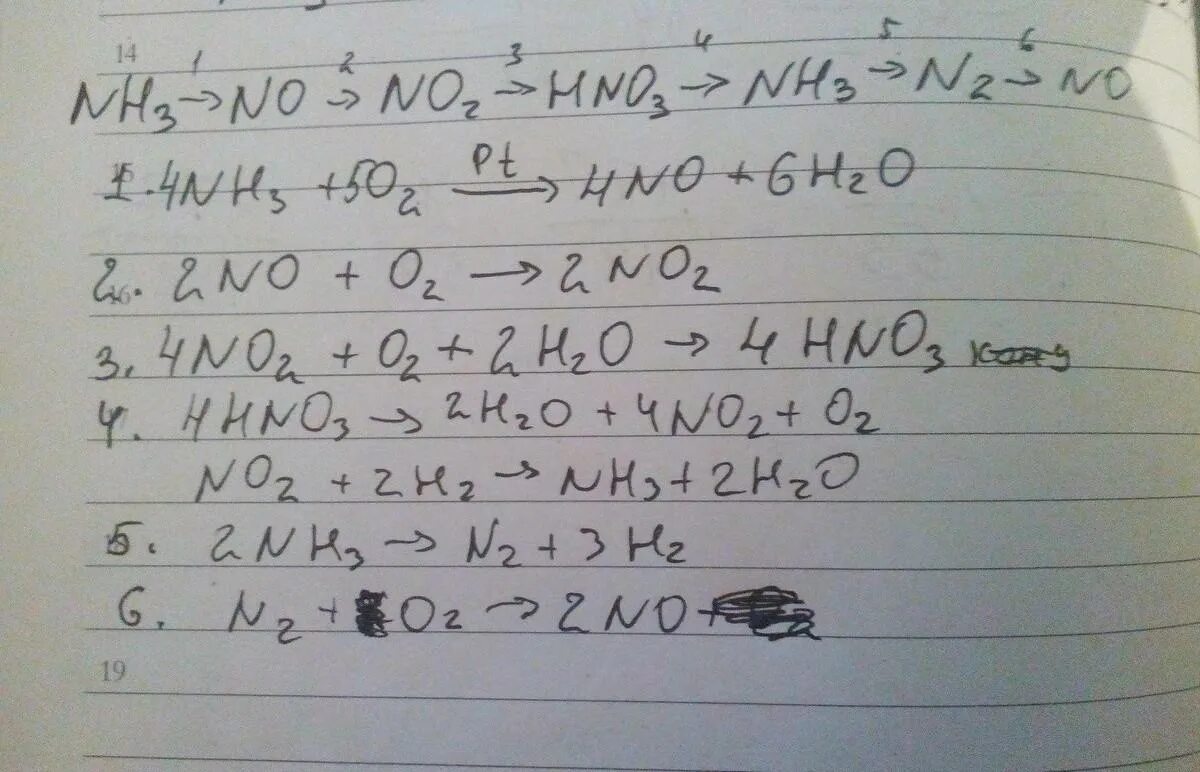 14
1 2 3 4 5 6
NH₃ → NO → NO₂ → HNO₃ → NH₃ → N₂ → NO
Pt
1. 4NH₃ + 5O₂ → 4NO + 6H₂O
2. 2NO + O₂ → 2NO₂
3. 4NO₂ + O₂ + 2H₂O → 4HNO₃
4. 4HNO₃ → 2H₂O + 4NO₂ + O₂
NO₂ + 2H₂ → NH₃ + 2H₂O
5. 2NH₃ → N₂ + 3H₂
6. N₂ + O₂ → 2NO +
19